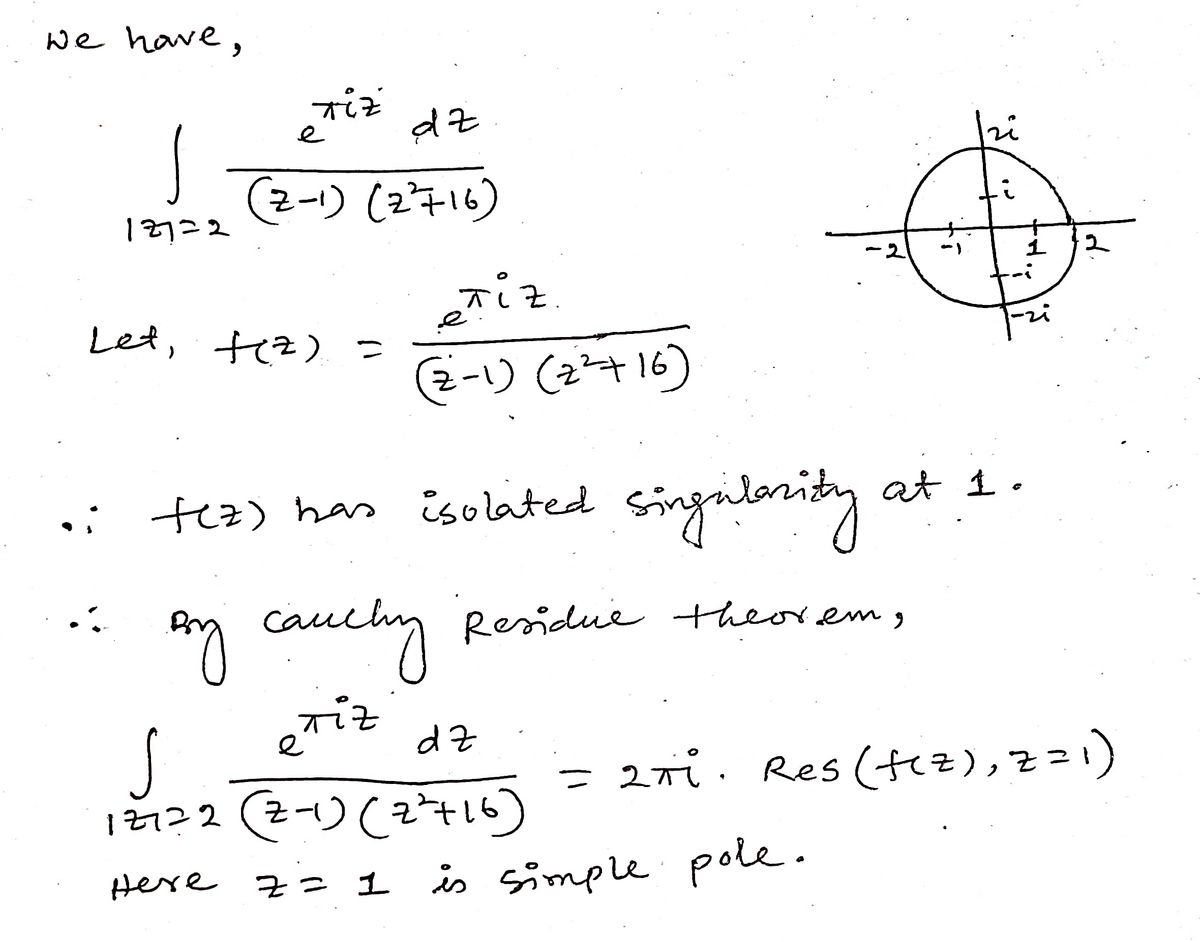 We have,
∫_{|z|=2} e^{πiz} dz / (z-1) (z²+16)
2i
i
-2 -1 1 2
-i
-2i
Let, f(z) = e^{πiz} / (z-1) (z²+16)
∴ f(z) has isolated singularity at 1.
∴ By cauchy Residue theorem,
∫_{|z|=2} e^{πiz} dz / (z-1) (z²+16) = 2πi. Res (f(z), z=1)
Here z = 1 is simple pole.